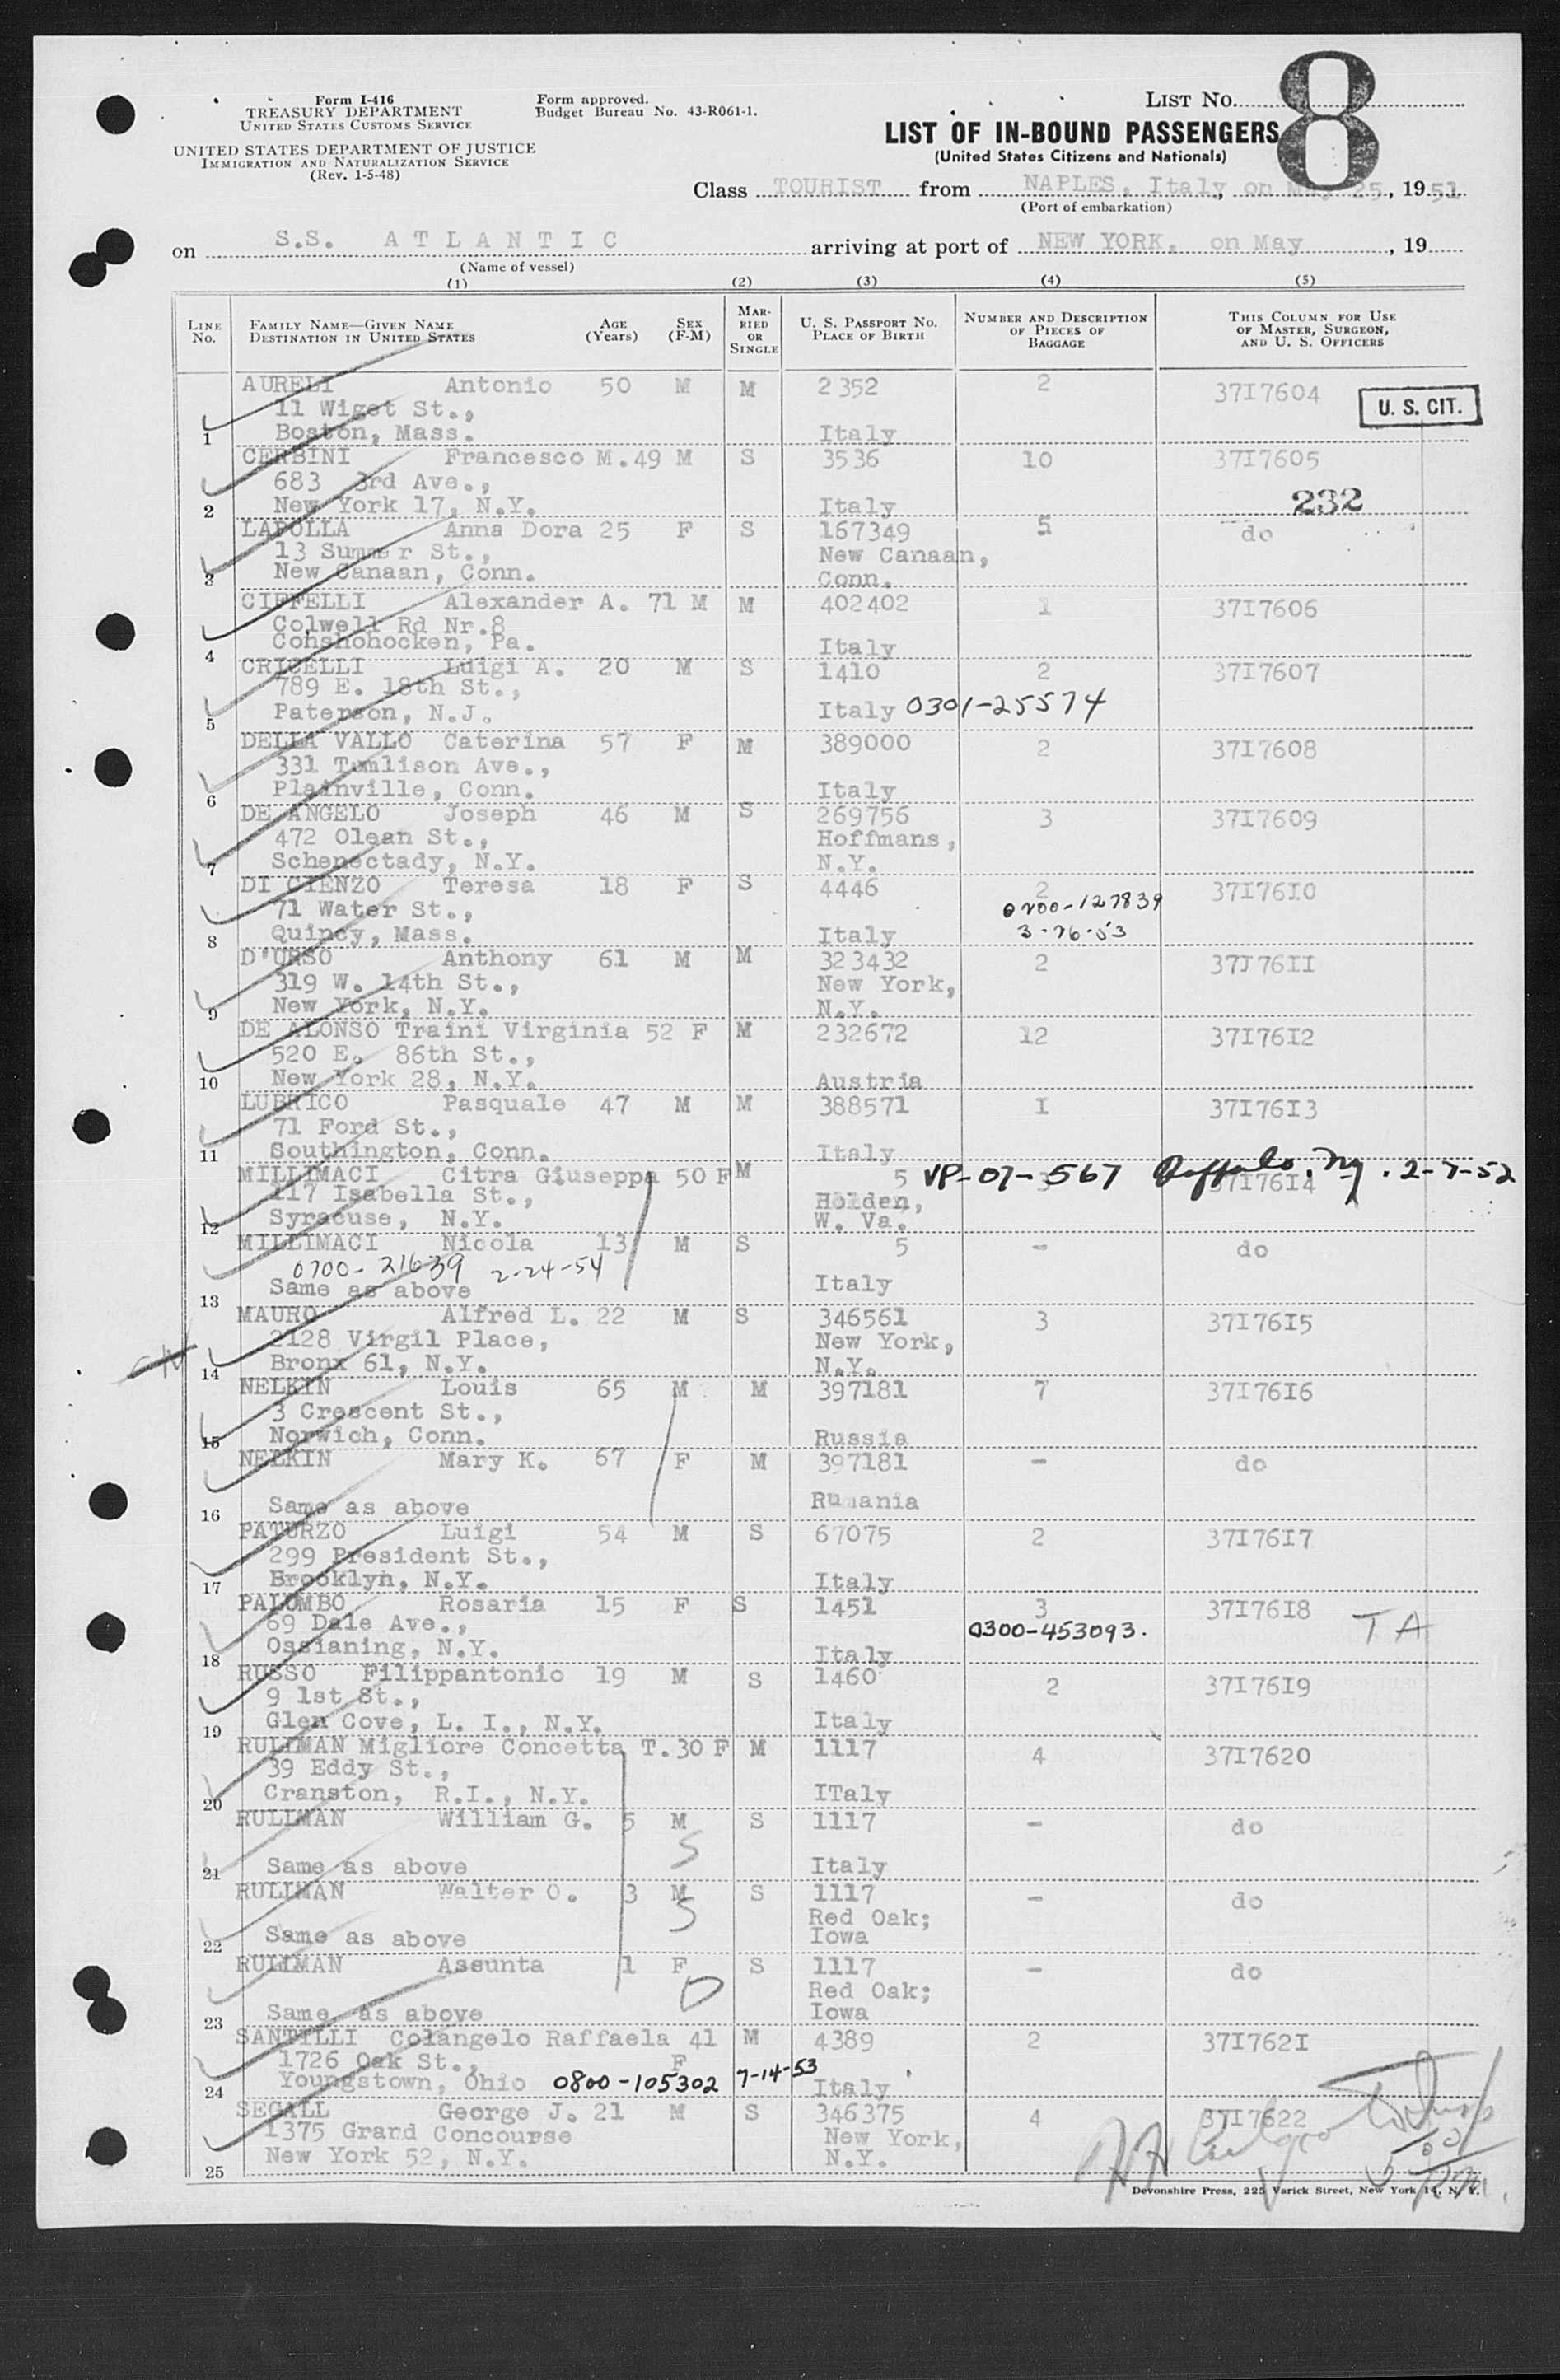 Form I-416
TREASURY DEPARTMENT
UNITED STATES CUSTOMS SERVICE
UNITED STATES DEPARTMENT OF JUSTICE
IMMIGRATION AND NATURALIZATION SERVICE
(Rev. 1-5-48)
Form approved.
Budget Bureau No. 43-R061-1.
LIST NO. 8
LIST OF IN-BOUND PASSENGERS
(United States Citizens and Nationals)
Class TOURIST from NAPLES, Italy, on May 25, 19 51
(Port of embarkation)
on S.S. ATLANTIC arriving at port of NEW YORK, on May , 19
(Name of vessel)
(1) (2) (3) (4) (5)
LINE NO. FAMILY NAME—GIVEN NAME DESTINATION IN UNITED STATES AGE (Years) SEX (F-M) MARRIED OR SINGLE U. S. PASSPORT NO. PLACE OF BIRTH NUMBER AND DESCRIPTION OF PIECES OF BAGGAGE THIS COLUMN FOR USE OF MASTER, SURGEON, AND U. S. OFFICERS
AURELI Antonio 50 M M 2352 2 37I7604
U. S. CIT.
11 Wiget St.,
1 Boston, Mass. Italy
CERBINI Francesco M. 49 M S 3536 10 37I7605
683 3rd Ave.,
2 New York 17, N.Y. Italy 232
LAPOLLA Anna Dora 25 F S 167349 5 do
13 Summer St., New Canaan,
3 New Canaan, Conn. Conn.
CIFFELLI Alexander A. 71 M M 402402 1 37I7606
Colwell Rd Nr.8
4 Conshohocken, Pa. Italy
CRISELLI Luigi A. 20 M S 1410 2 37I7607
789 E. 18th St.,
5 Paterson, N.J. Italy 0301-25574
DELLA VALLO Caterina 57 F M 389000 2 37I7608
331 Tomlison Ave.,
6 Plainville, Conn. Italy
DE ANGELO Joseph 46 M S 269756 3 37I7609
472 Olean St., Hoffmans,
7 Schenectady, N.Y. N.Y.
DI CIENZO Teresa 18 F S 4446 2 37I76I0
71 Water St., 0200-127839
8 Quincy, Mass. Italy 3-26-53
D'URSO Anthony 61 M M 323432 2 37I76II
319 W. 14th St., New York,
9 New York, N.Y. N.Y.
DE ALONSO Traini Virginia 52 F M 232672 12 37I76I2
520 E. 86th St.,
10 New York 28, N.Y. Austria
LUBRICO Pasquale 47 M M 388571 I 37I76I3
71 Ford St.,
11 Southington, Conn. Italy
MILLIMACI Citra Giuseppa 50 F M 5 VP-07-567 3 Buffalo, Ny. 2-7-52 37I76I4
117 Isabella St., Holden,
12 Syracuse, N.Y. W. Va.
MILLIMACI Nicola 13 M S 5 - do
0700-21639 2-24-54
13 Same as above Italy
MAURO Alfred L. 22 M S 346561 3 37I76I5
2128 Virgil Place, New York,
14 Bronx 61, N.Y. N.Y.
NELKIN Louis 65 M M 397181 7 37I76I6
3 Crescent St.,
15 Norwich, Conn. Russia
NELKIN Mary K. 67 F M 397181 - do
16 Same as above Rumania
PATURZO Luigi 54 M S 67075 2 37I76I7
299 President St.,
17 Brooklyn, N.Y. Italy
PALOMBO Rosaria 15 F S 1451 3 37I76I8
69 Dale Ave., 0300-453093. TA
18 Ossianing, N.Y. Italy
RUSSO Filippantonio 19 M S 1460 2 37I76I9
9 1st St.,
19 Glen Cove, L. I., N.Y. Italy
RULLMAN Migliore Concetta T. 30 F M 1117 4 37I7620
39 Eddy St.,
20 Cranston, R.I., N.Y. ITaly
RULLMAN William G. 5 M S 1117 - do
S
21 Same as above Italy
RULLMAN Walter O. 3 M S 1117 - do
S Red Oak;
22 Same as above Iowa
RULLMAN Assunta 1 F S 1117 - do
D Red Oak;
23 Same as above Iowa
SANTILLI Colangelo Raffaela 41 M 4389 2 37I762I
1726 Oak St., F
24 Youngstown, Ohio 0800-105302 7-14-53 Italy
SEGALL George J. 21 M S 346375 4 37I7622
1375 Grand Concourse New York,
25 New York 52, N.Y. N.Y.
Devonshire Press, 225 Varick Street, New York 14, N. Y.